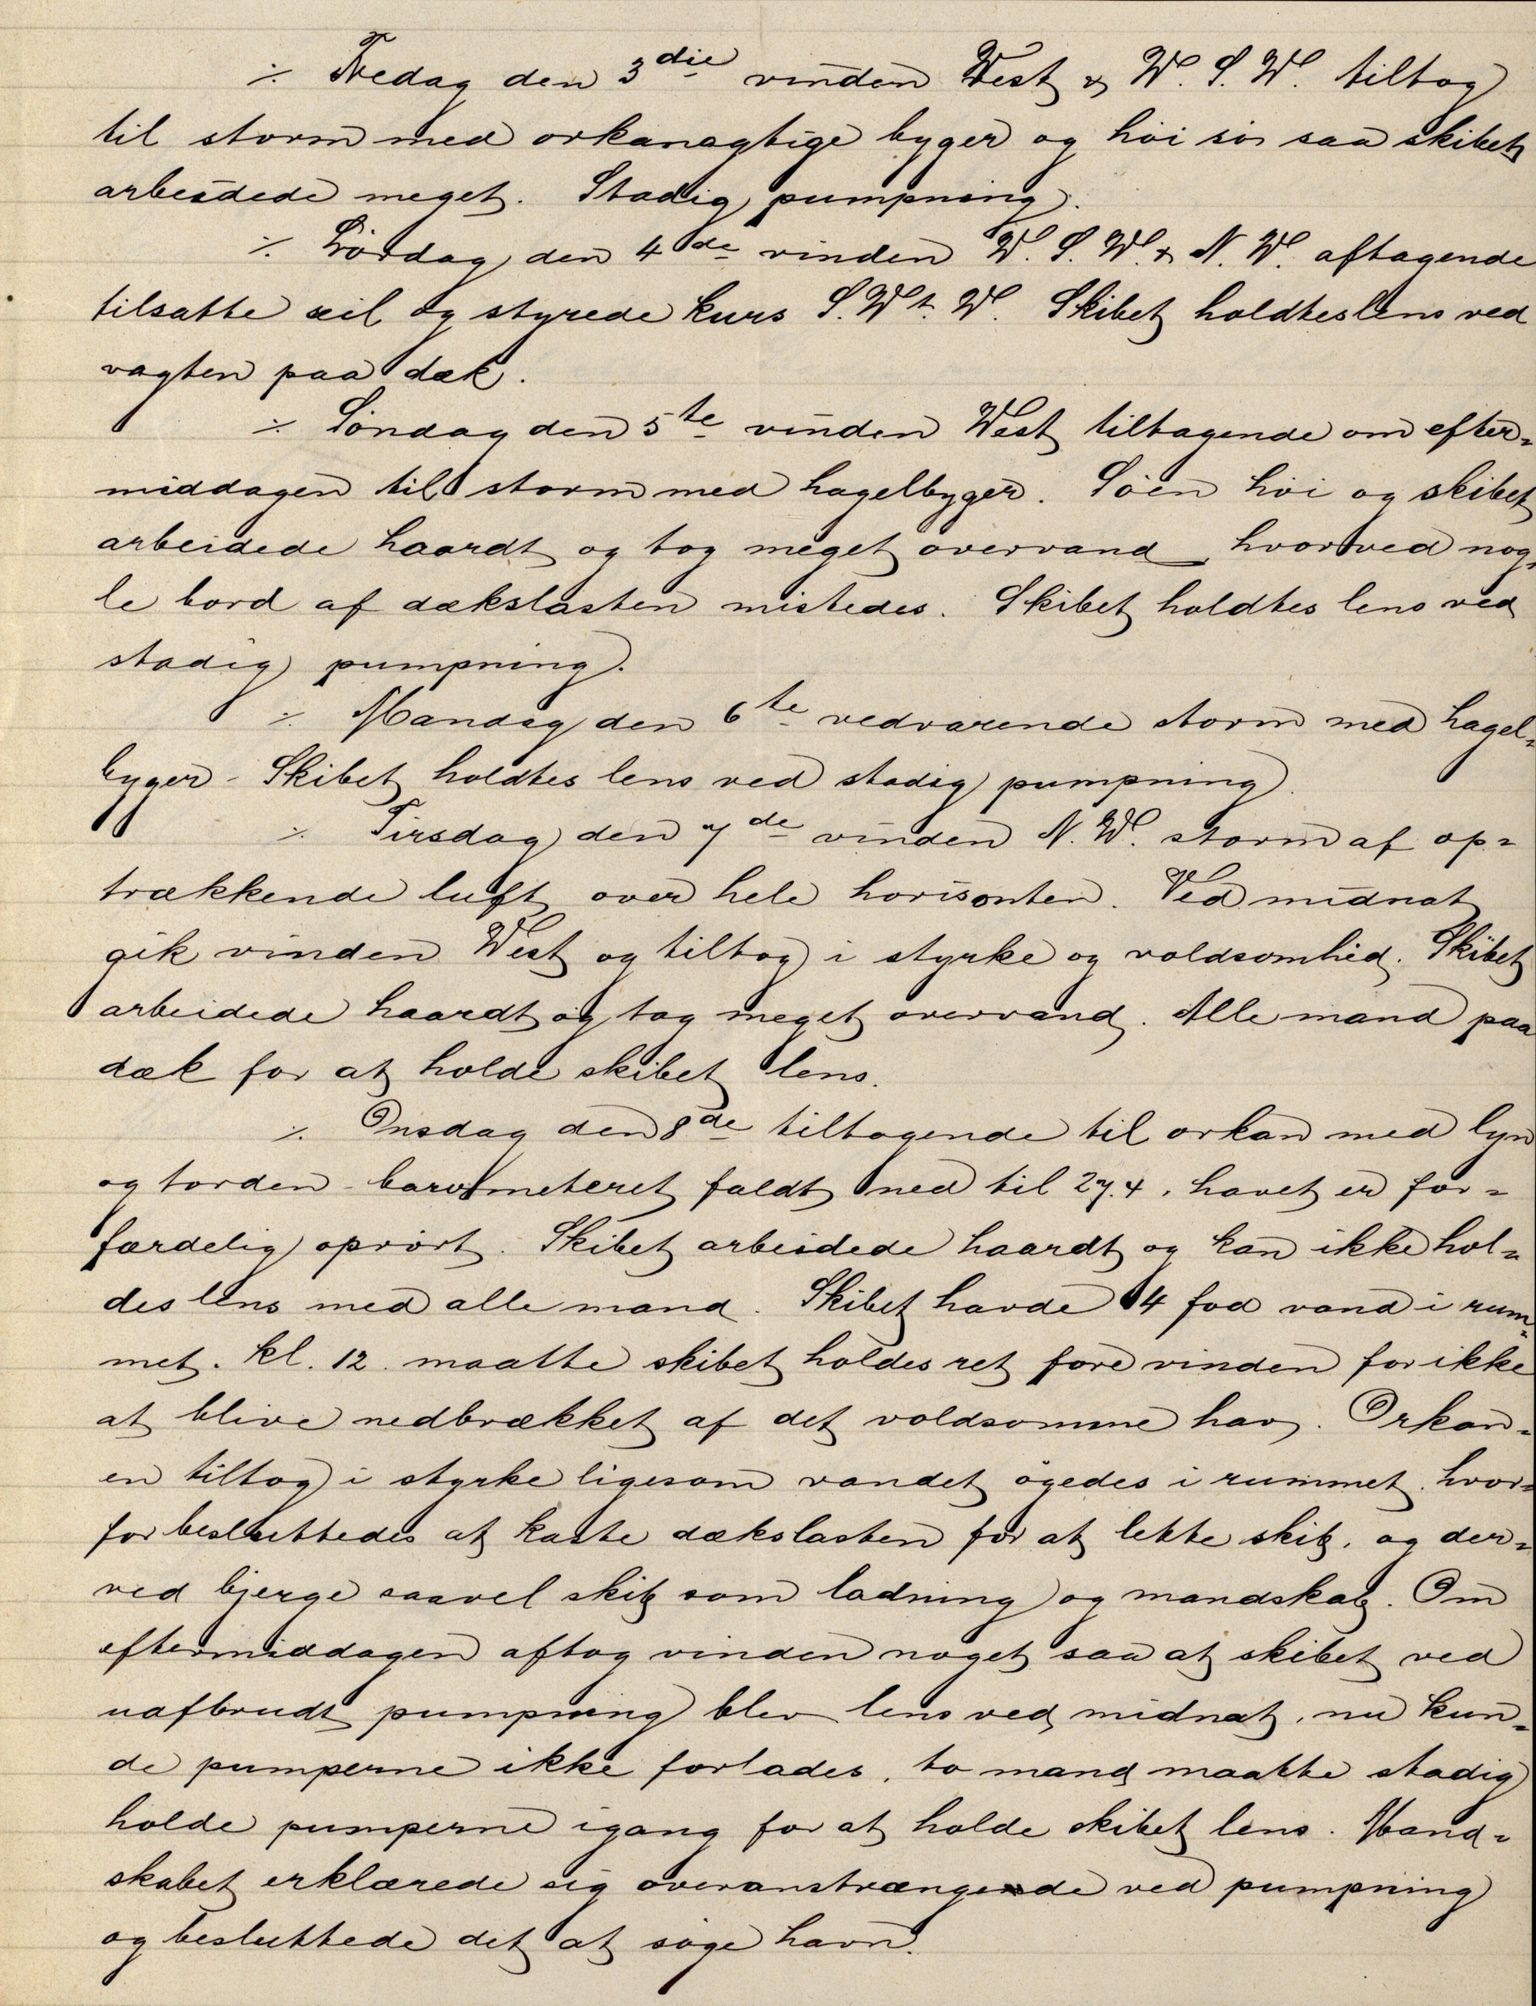 ⁒ Fredag den 3die vinden West & W. S. W. tiltog
til storm med orkanagtige byger og höi sö saa skibet
arbeidede meget. Stadig pumpning.
⁒ Lördag den 4de vinden W. S. W. & N. W. aftagende
tilsatte seil og styrede kurs S. W t. W. Skibet holdtes lens ved
vagten paa dæk.
⁒ Söndag den 5te vinden West tiltagende om efter-
middagen til storm med hagelbyger. Söen höi og skibet
arbeidede haardt og tog meget overvand, hvorved nog-
le bord af dækslasten mistedes. Skibet holdtes lens ved
stadig pumpning.
⁒ Mandag den 6te vedvarende storm med hagel-
byger - Skibet holdtes lens ved stadig pumpning.
⁒ Tirsdag den 7de vinden N. W. storm af op-
trækkende luft over hele horisonten. Ved midnat
gik vinden West og tiltog i styrke og voldsomhed. Skibet
arbeidede haardt og tog meget overvand. Alle mand paa
dæk for at holde skibet lens.
⁒ Onsdag den 8de tiltagende til orkan med lyn
og torden - barometeret faldt ned til 27.4, havet er for-
færdelig oprört. Skibet arbeidede haardt og kan ikke hol-
des lens med alle mand. Skibet havde 4 fod vand i rum-
met. kl. 12. maatte skibet holdes ret fore vinden for ikke
at blive nedbrækket af det voldsomme hav. Orkan-
en tiltog i styrke ligesom vandet ögedes i rummet, hvor-
for besluttedes at kaste dækslasten for at lette skib, og der-
ved bjerge saavel skib som ladning og mandskab. Om
eftermiddagen aftog vinden noget saa at skibet ved
uafbrudt pumpning blev lens ved midnat, nu kun-
de pumperne ikke forlades, to mand maatte stadig
holde pumperne igang for at holde skibet lens. Mand-
skabet erklærede sig overanstrængende ved pumpning
og besluttede det at söge havn.